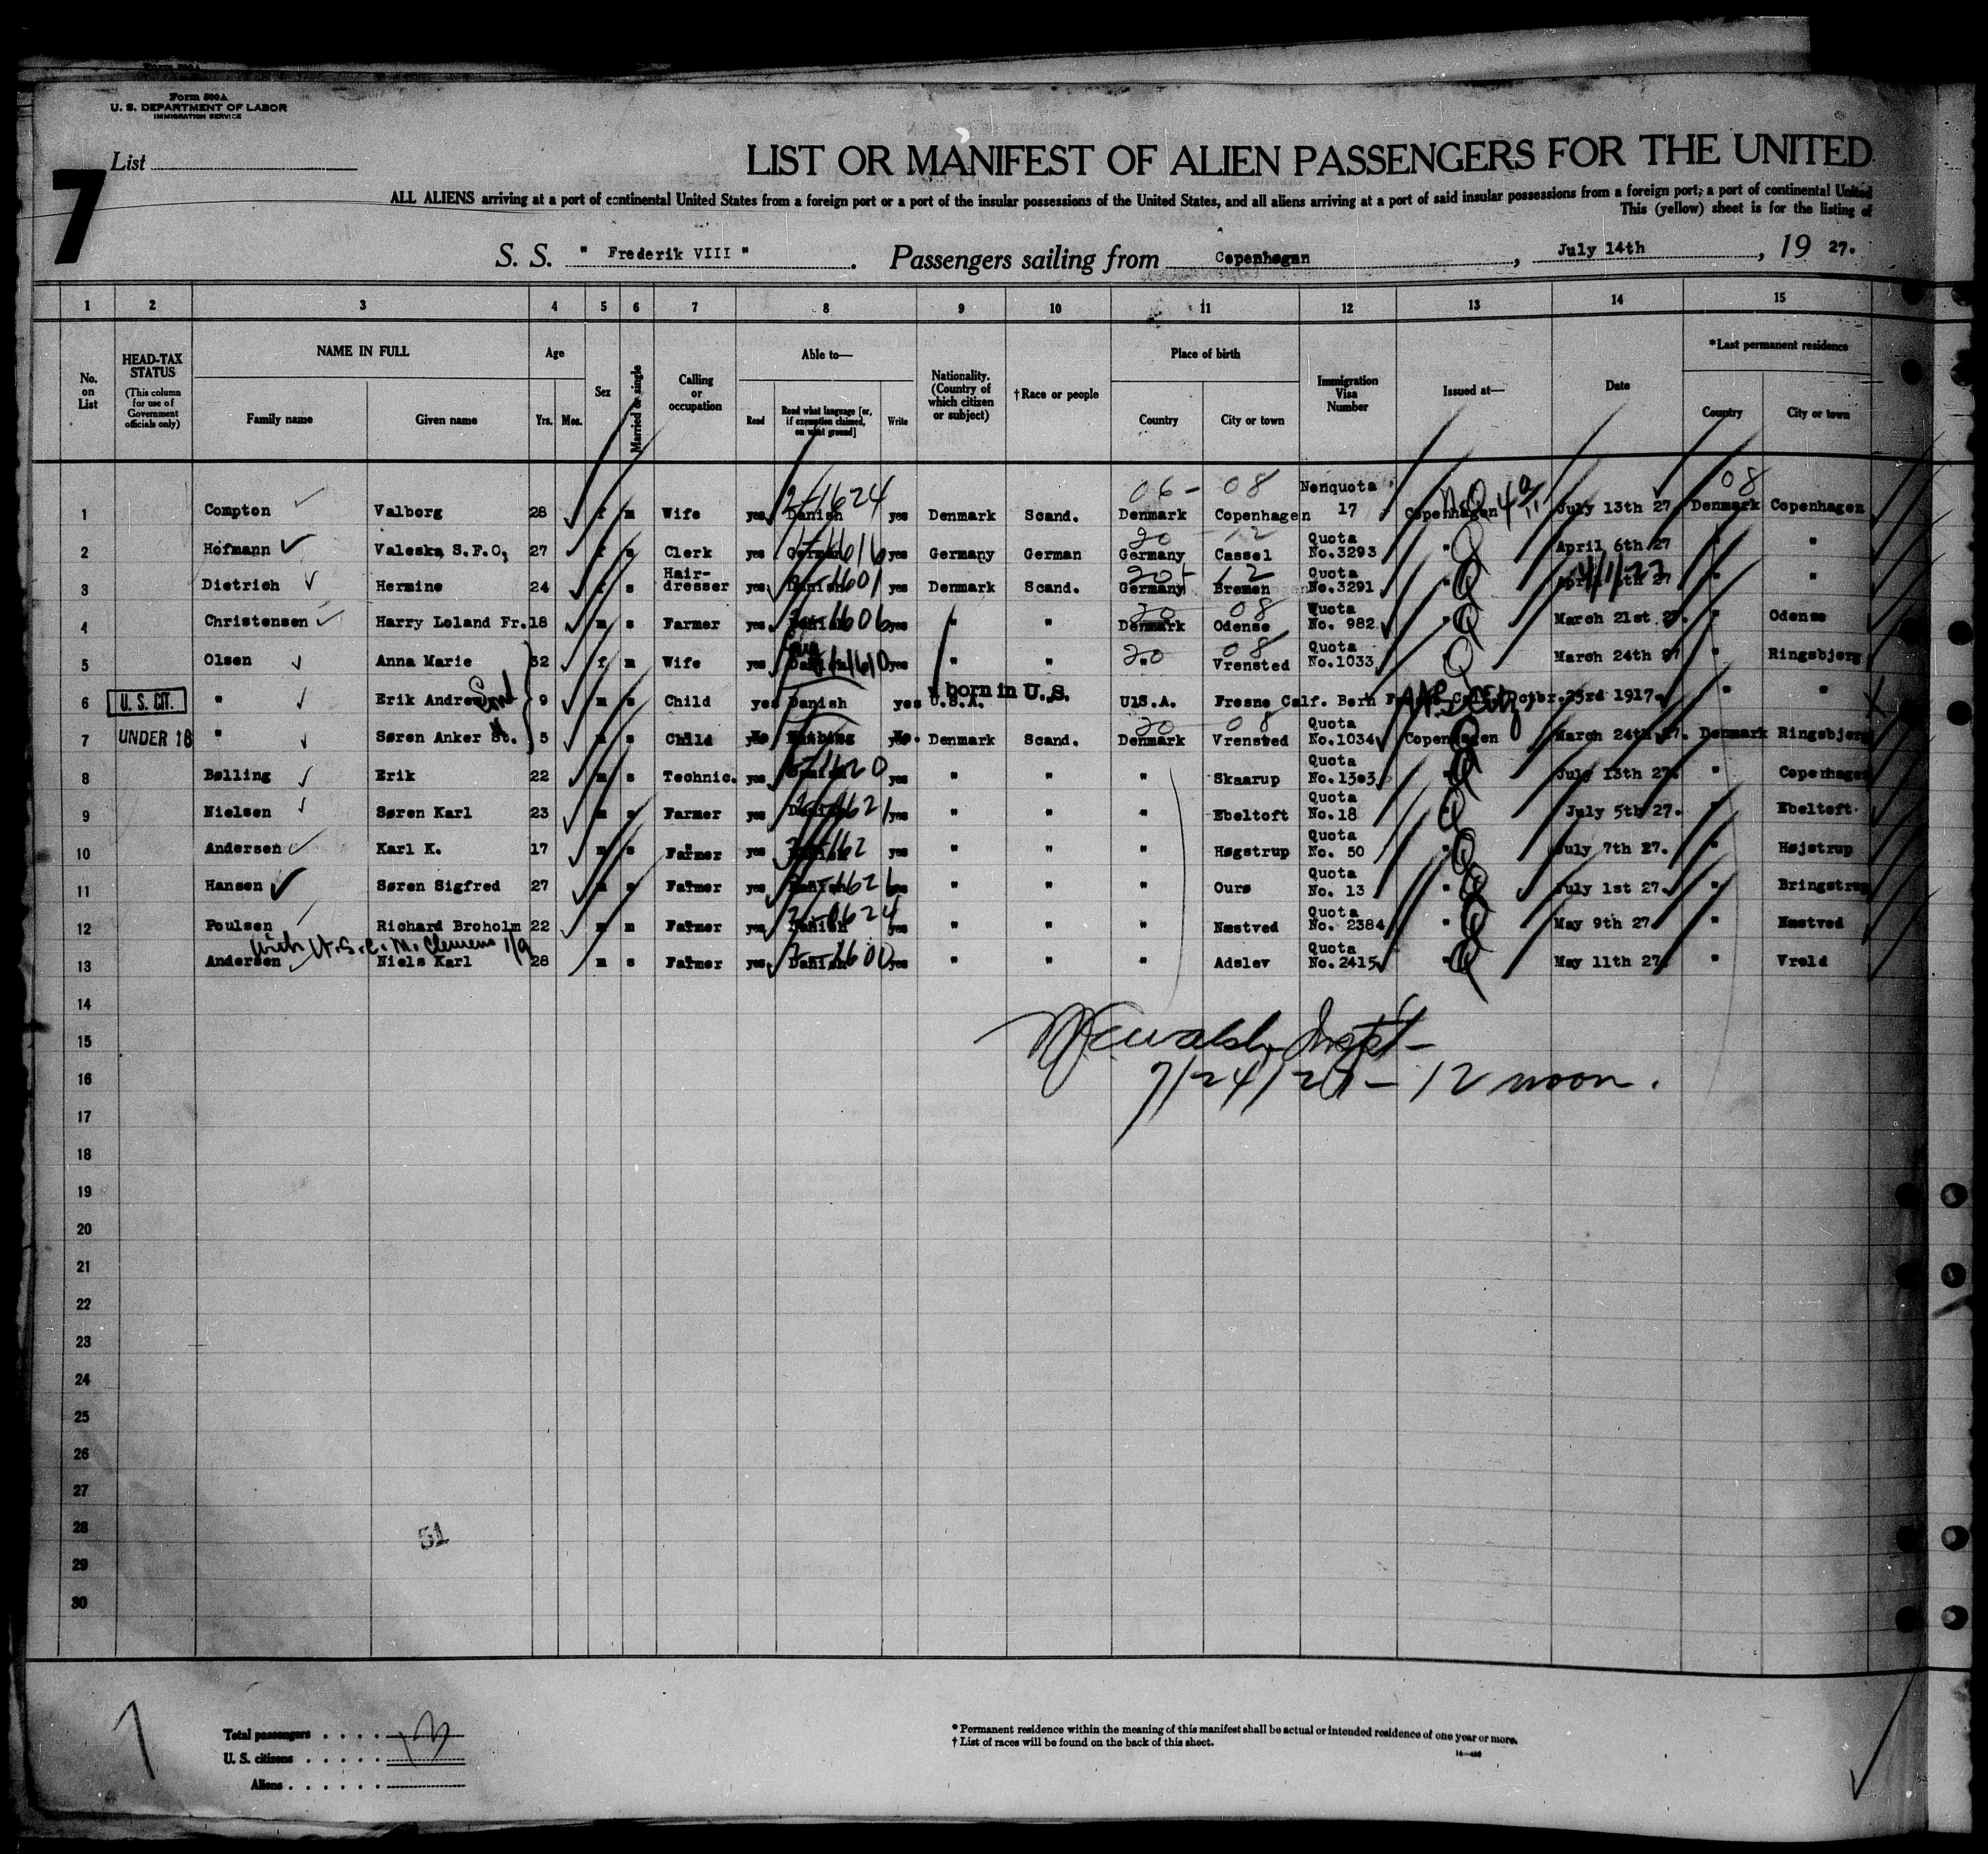 Form 500A
U. S. DEPARTMENT OF LABOR
IMMIGRATION SERVICE
List
7
LIST OR MANIFEST OF ALIEN PASSENGERS FOR THE UNITED
ALL ALIENS arriving at a port of continental United States from a foreign port or a port of the insular possessions of the United States, and all aliens arriving at a port of said insular possessions from a foreign port, a port of continental United
This (yellow) sheet is for the listing of
S. S. " Frederik VIII " . Passengers sailing from Copenhagen , July 14th , 19 27.
1 2 3 4 5 6 7 8 9 10 11 12 13 14 15
No. on List
HEAD-TAX STATUS (This column for use of Government officials only)
NAME IN FULL
Family name Given name
Age
Yrs. Mos.
Sex
Married or single
Calling or occupation
Able to—
Read Read what language [or, if exemption claimed, on what ground] Write
Nationality. (Country of which citizen or subject)
†Race or people
Place of birth
Country City or town
Immigration Visa Number
Issued at—
Date
*Last permanent residence
Country City or town
06 - 08 Nonquota 08
1 Compton Valborg 28 f m Wife yes Danish 1624 yes Denmark Scand. Denmark Copenhagen 17 Copenhagen July 13th 27 Denmark Copenhagen
2 Hofmann Valeska S.F.O. 27 f s Clerk yes German yes Germany German Germany Cassel Quota No.3293 " April 6th 27 " "
3 Dietrich Hermine 24 f s Hair-dresser yes Danish 1601 yes Denmark Scand. Germany Bremen Quota No.3291 " " "
4 Christensen Harry Leland Fr. 18 m s Farmer yes Danish 1606 yes " " Denmark Odense Quota No. 982 " March 21st 27. " Odense
5 Olsen Anna Marie 32 f m Wife yes Danish 1610 yes " " " Vrensted Quota No.1033 March 24th 27 " Ringsbjerg
6 U. S. CIT. " Erik Andrew 9 m s Child yes Danish yes U.S.A. born in U.S. U.S.A. Fresno Calf. Born 23rd 1917. " "
7 UNDER 16 " Søren Anker St. 5 m s Child No Nothing No. Denmark Scand. Denmark Vrensted Quota No.1034 Copenhagen March 24th 27. Denmark Ringsbjerg
8 Bølling Erik 22 m s Technic. yes Danish 1620 yes " " " Skaarup Quota No.1303 " July 13th 27. " Copenhagen
9 Nielsen Søren Karl 23 m s Farmer yes Danish 1621 yes " " " Ebeltoft Quota No.18 July 5th 27. " Ebeltoft
10 Andersen Karl K. 17 m s Farmer yes Danish yes " " " Høgstrup Quota No. 50 " July 7th 27. " Højstrup
11 Hansen Søren Sigfred 27 m s Farmer yes Danish yes " " " Ourø Quota No. 13 " July 1st 27. " Bringstrup
12 Poulsen Richard Broholm 22 m m Farmer yes Danish 1624 yes " " " Næstved Quota No. 2384 " May 9th 27 " Næstved
with U.S.C. M. Clemens 1/9
13 Andersen Niels Karl 28 m s Farmer yes Danish 1600 yes " " " Adslev Quota No.2415 " May 11th 27. " Vrold
14
15
16 7/24/27 - 12 noon.
17
18
19
20
21
22
23
24
25
26
27
28
51
29
30
Total passengers . . . .
U. S. citizens . . . . .
Aliens . . . . . .
* Permanent residence within the meaning of this manifest shall be actual or intended residence of one year or more.
† List of races will be found on the back of this sheet.